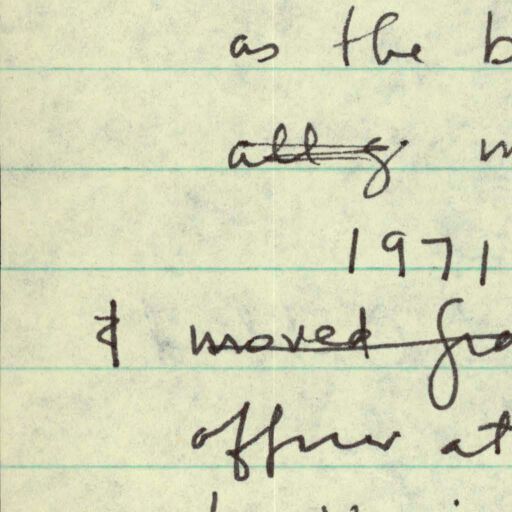 as the b
all g m
1971
& moved fro
officer at